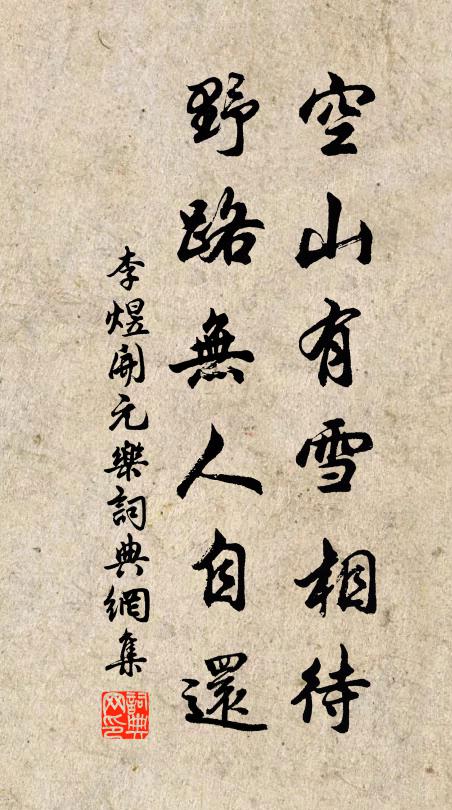 空山有雪相待
野路無人自還
李煜開元樂詞典網集
詞典网印